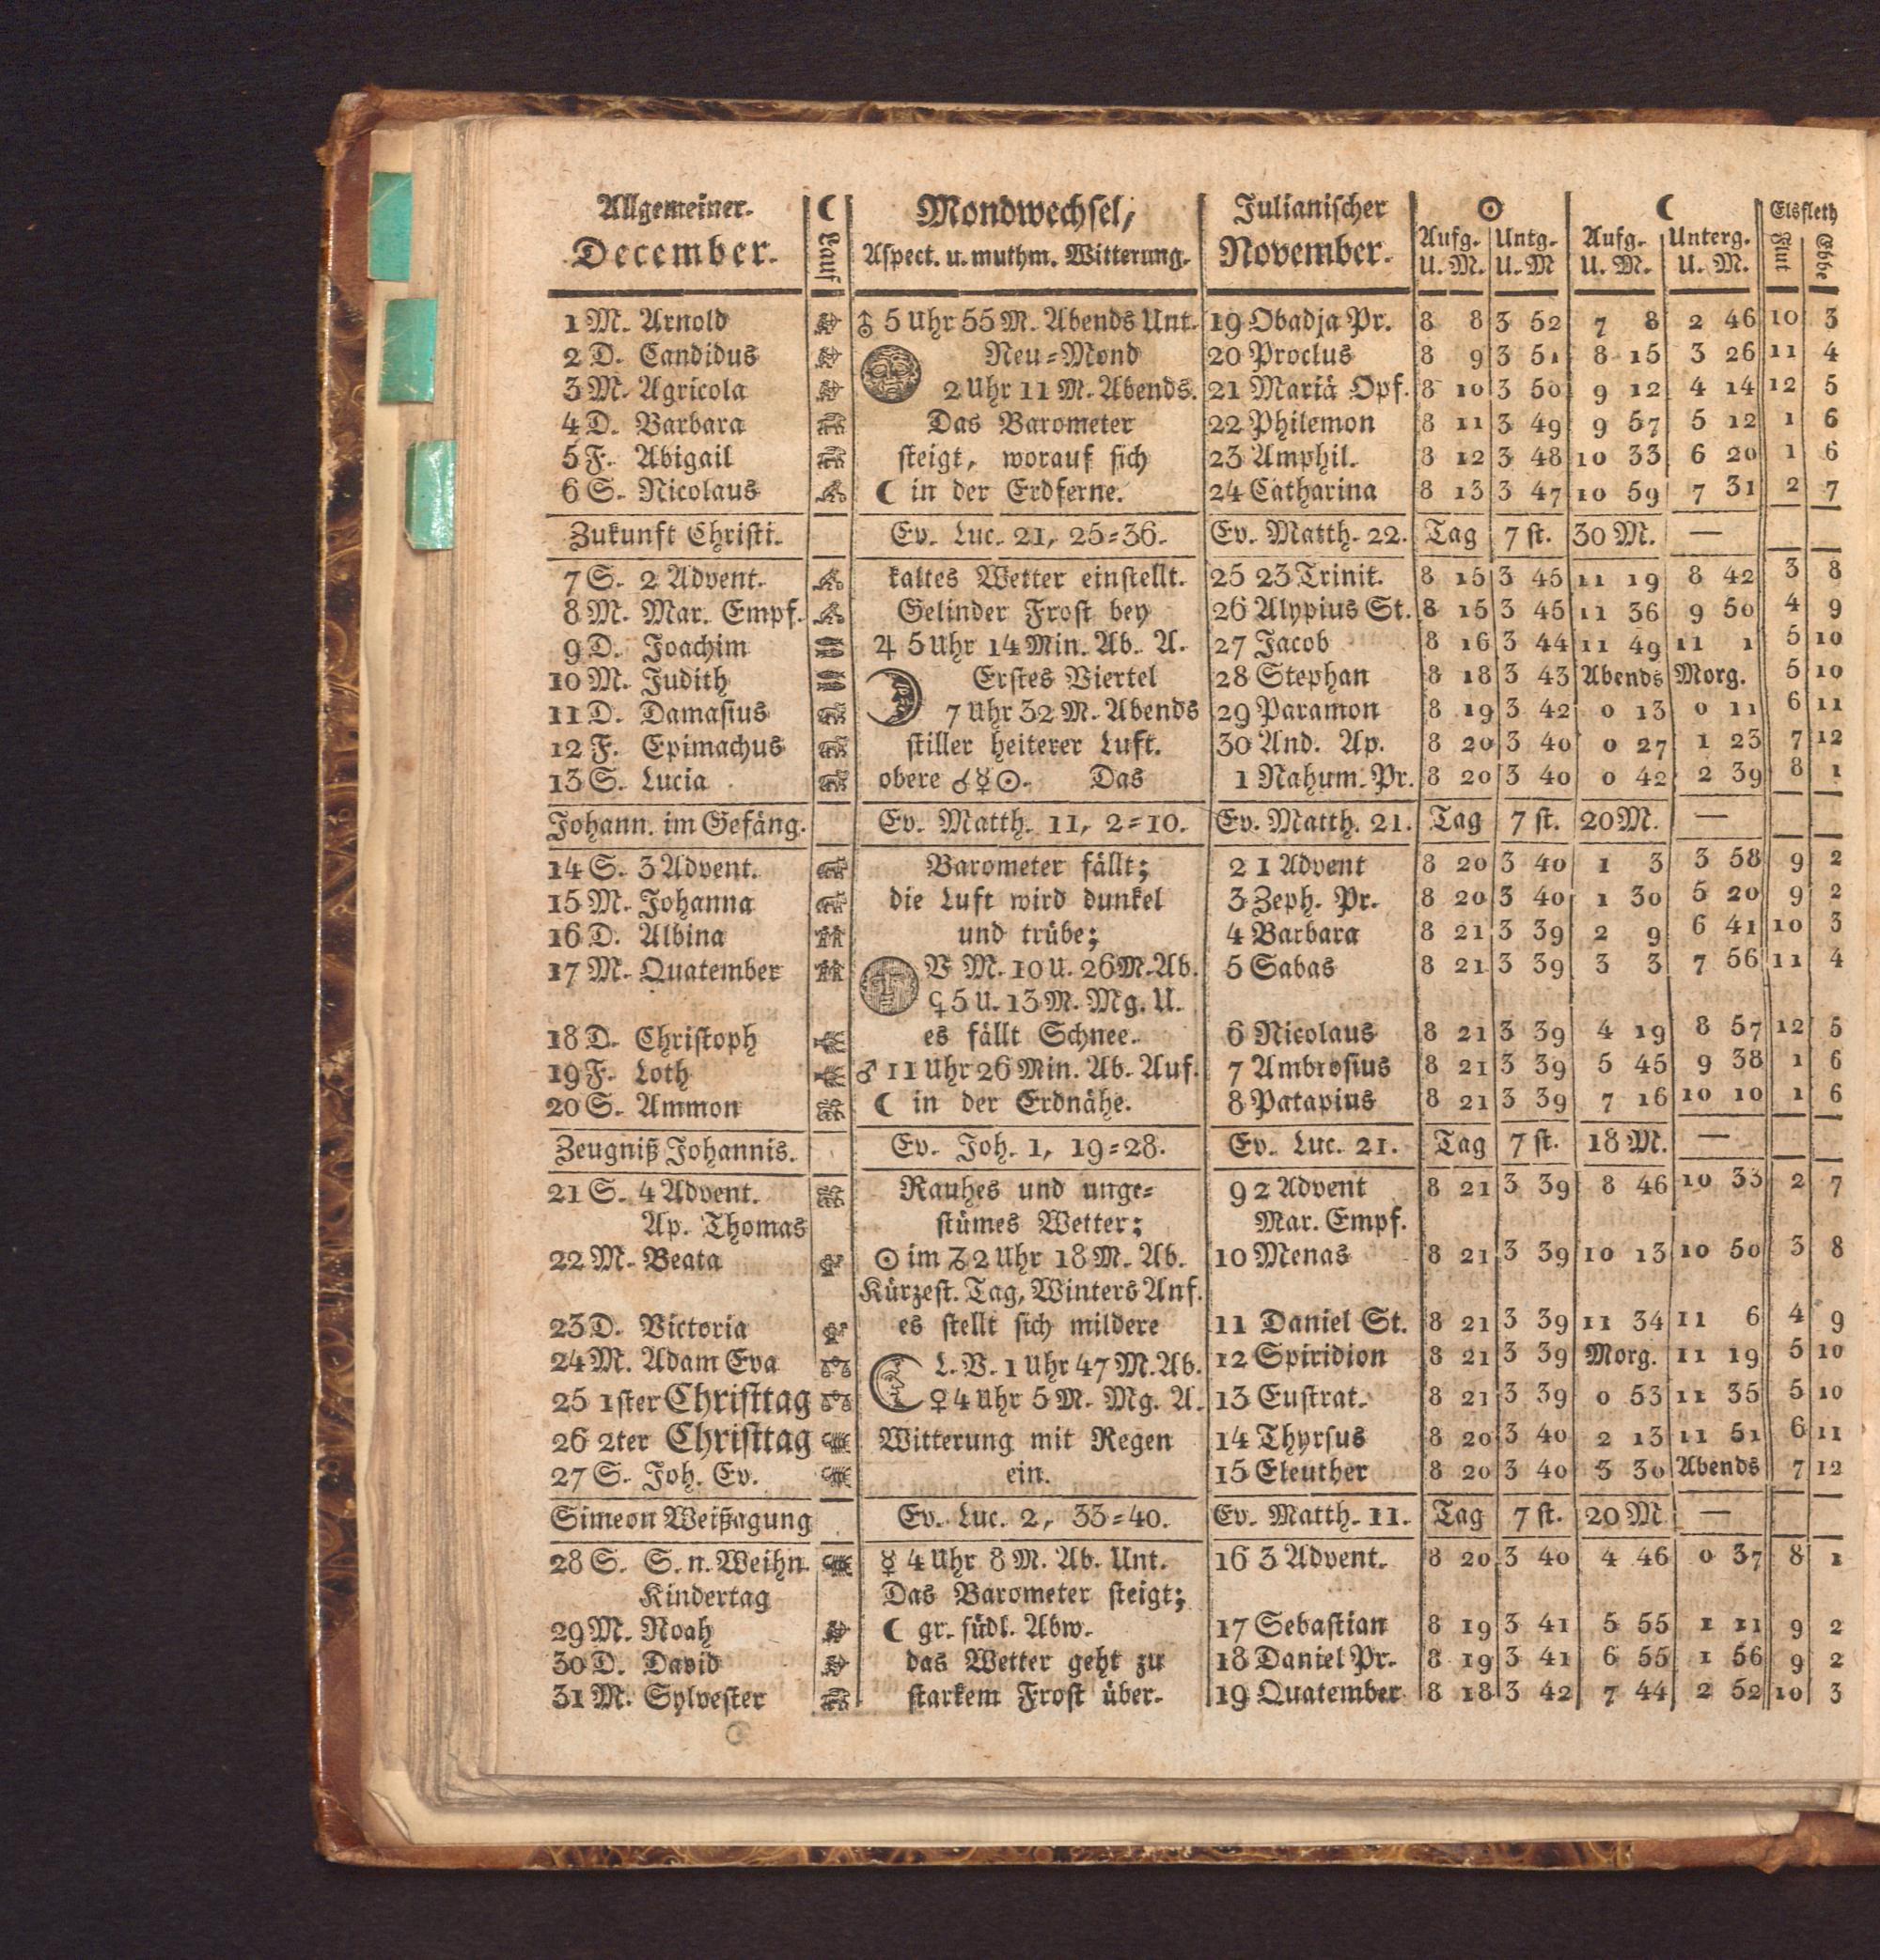 Allgemeiner. ☾ Mondwechsel, Julianischer ☉ ☾ Elsfleth
December. Lauf Aspect. u. muthm. Witterung. November. Aufg. Untg. Aufg. Unterg. Flut Ebbe
U. M. U. M U. M. U. M.
1 M. Arnold ♁ 5 Uhr 55 M. Abends Unt. 19 Obadja Pr. 8 8 3 52 7 8 2 46 10 3
2 D. Candidus Neu=Mond 20 Proclus 8 9 3 51 8 15 3 26 11 4
3 M. Agricola 2 Uhr 11 M. Abends. 21 Mariä Opf. 8 10 3 50 9 12 4 14 12 5
4 D. Barbara Das Barometer 22 Philemon 8 11 3 49 9 57 5 12 1 6
5 F. Abigail steigt, worauf sich 23 Amphil. 8 12 3 48 10 33 6 20 1 6
6 S. Nicolaus ☾ in der Erdferne. 24 Catharina 8 13 3 47 10 59 7 31 2 7
Zukunft Christi. Ev. Luc. 21, 25=36. Ev. Matth. 22. Tag 7 st. 30 M. —
7 S. 2 Advent. kaltes Wetter einstellt. 25 23 Trinit. 8 15 3 45 11 19 8 42 3 8
8 M. Mar. Empf. Gelinder Frost bey 26 Alypius St. 8 15 3 45 11 36 9 50 4 9
9 D. Joachim ♃ 5 Uhr 14 Min. Ab. A. 27 Jacob 8 16 3 44 11 49 11 1 5 10
10 M. Judith Erstes Viertel 28 Stephan 8 18 3 43 Abends Morg. 5 10
11 D. Damasius 7 Uhr 32 M. Abends 29 Paramon 8 19 3 42 0 13 0 11 6 11
12 F. Epimachus stiller heiterer Luft. 30 And. Ap. 8 20 3 40 0 27 1 23 7 12
13 S. Lucia obere ☌ ☿ ☉. Das 1 Nahum. Pr. 8 20 3 40 0 42 2 39 8 1
Johann. im Gefäng. Ev. Matth. 11, 2=10. Ev. Matth. 21. Tag 7 st. 20 M. —
14 S. 3 Advent. Barometer fällt; 2 1 Advent 8 20 3 40 1 3 3 58 9 2
15 M. Johanna die Luft wird dunkel 3 Zeph. Pr. 8 20 3 40 1 30 5 20 9 2
16 D. Albina und trübe; 4 Barbara 8 21 3 39 2 9 6 41 10 3
17 M. Quatember V M. 10 U. 26 M. Ab. 5 Sabas 8 21 3 39 3 3 7 56 11 4
5 U. 13 M. Mg. U.
18 D. Christoph es fällt Schnee. 6 Nicolaus 8 21 3 39 4 19 8 57 12 5
19 F. Loth ♂ 11 Uhr 26 Min. Ab. Auf. 7 Ambrosius 8 21 3 39 5 45 9 38 1 6
20 S. Ammon ☾ in der Erdnähe. 8 Patapius 8 21 3 39 7 16 10 10 1 6
Zeugniß Johannis. Ev. Joh. 1, 19=28. Ev. Luc. 21. Tag 7 st. 18 M. —
21 S. 4 Advent. Rauhes und unge= 9 2 Advent 8 21 3 39 8 46 10 33 2 7
Ap. Thomas stümes Wetter; Mar. Empf.
22 M. Beata ☉ im ♑ 2 Uhr 18 M. Ab. 10 Menas 8 21 3 39 10 13 10 50 3 8
Kürzest. Tag, Winters Anf.
23 D. Victoria es stellt sich mildere 11 Daniel St. 8 21 3 39 11 34 11 6 4 9
24 M. Adam Eva L. V. 1 Uhr 47 M. Ab. 12 Spiridion 8 21 3 39 Morg. 11 19 5 10
25 1ster Christtag ♀ 4 Uhr 5 M. Mg. A. 13 Eustrat. 8 21 3 39 0 53 11 35 5 10
26 2ter Christtag Witterung mit Regen 14 Thyrsus 8 20 3 40 2 13 11 51 6 11
27 S. Joh. Ev. ein. 15 Eleuther 8 20 3 40 3 30 Abends 7 12
Simeon Weißagung Ev. Luc. 2, 33=40. Ev. Matth. 11. Tag 7 st. 20 M —
28 S. S. n. Weihn. ☿ 4 Uhr 8 M. Ab. Unt. 16 3 Advent. 8 20 3 40 4 46 0 37 8 1
Kindertag Das Barometer steigt;
29 M. Noah ☾ gr. südl. Abw. 17 Sebastian 8 19 3 41 5 55 1 11 9 2
30 D. David das Wetter geht zu 18 Daniel Pr. 8 19 3 41 6 55 1 56 9 2
31 M. Sylvester starkem Frost über. 19 Quatember 8 18 3 42 7 44 2 52 10 3